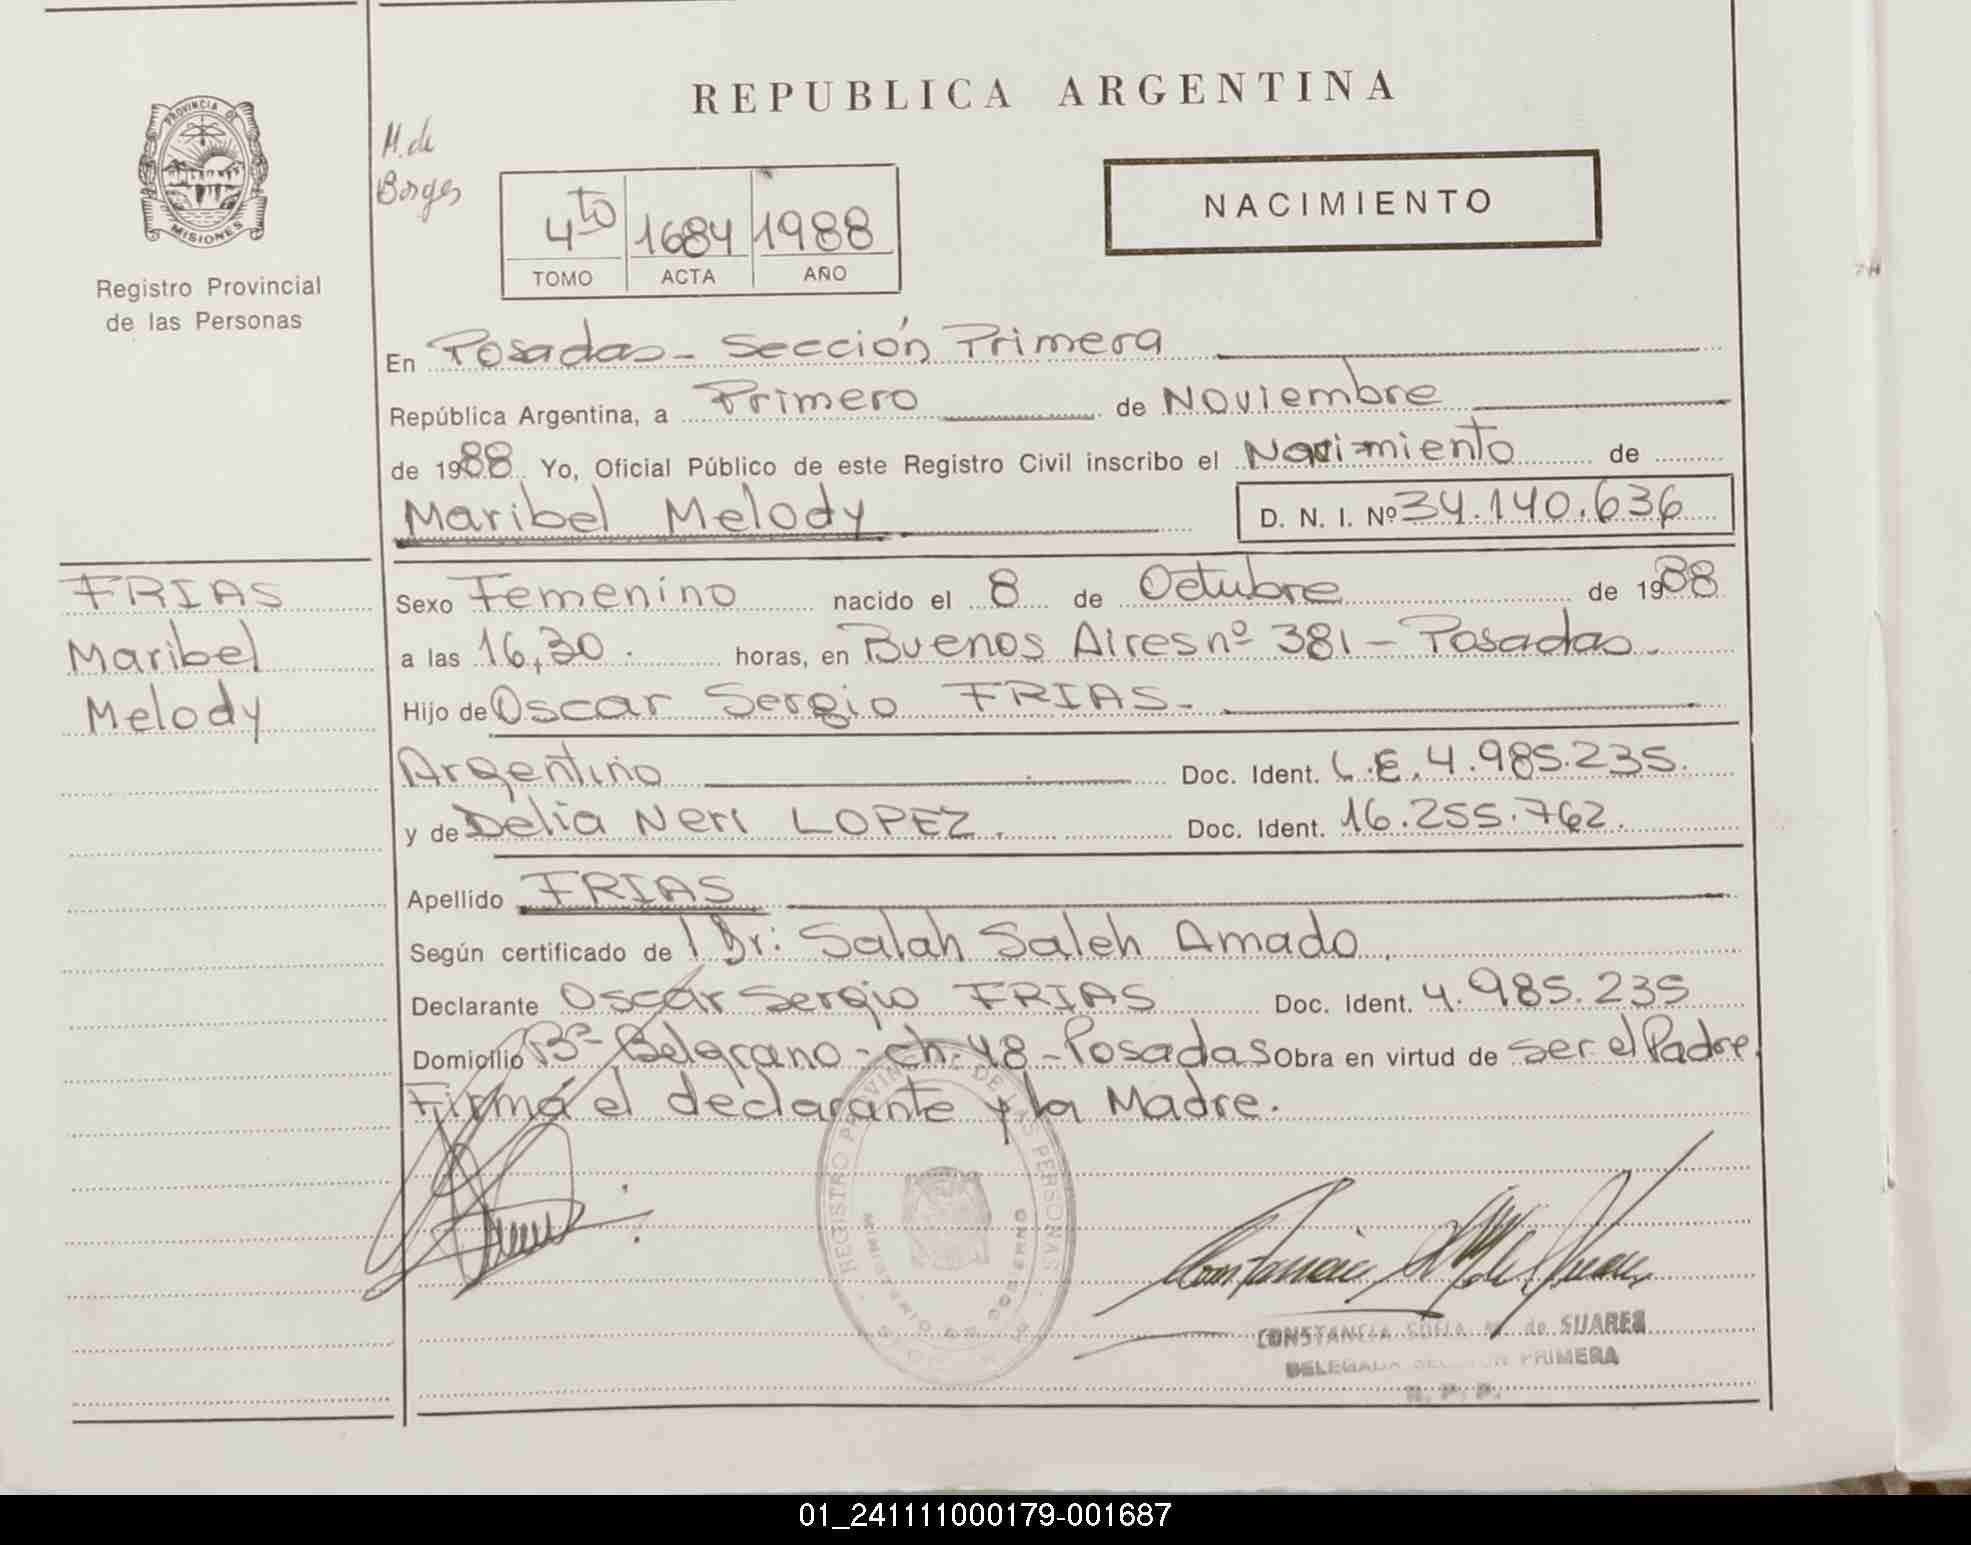 REPUBLICA ARGENTINA
PROVINCIA DE
MISIONES
Registro Provincial
de las Personas
M. de
Borges
NACIMIENTO
4to 1684 1988
TOMO ACTA AÑO
En Posadas - Sección Primera
República Argentina, a Primero de Noviembre
de 1988 Yo, Oficial Público de este Registro Civil inscribo el Nacimiento de
Maribel Melody D. N. I. Nº 34.140.636
FRIAS
Maribel
Melody
Sexo Femenino nacido el 8 de Octubre de 1988
a las 16,30. horas, en Buenos Aires nº 381 - Posadas.
Hijo de Oscar Sergio FRIAS.-
Argentino Doc. Ident. L.E. 4.985.235.
y de Delia Neri LOPEZ. Doc. Ident. 16.255.762.
Apellido FRIAS
Según certificado de l Dr: Salah Saleh Amado
Declarante Oscar Sergio FRIAS Doc. Ident. 4.985.235
Domicilio Bº Belgrano - ch. 48 - Posadas Obra en virtud de ser el Padre.
Firma el declarante y la Madre.
REGISTRO PROVINCIAL DE LAS PERSONAS
MINISTERIO DE GOBIERNO
MISIONES
CONSTANCIA SOFIA M. de SUAREZ
DELEGADA SECCION PRIMERA
R. P. P.
01_241111000179-001687